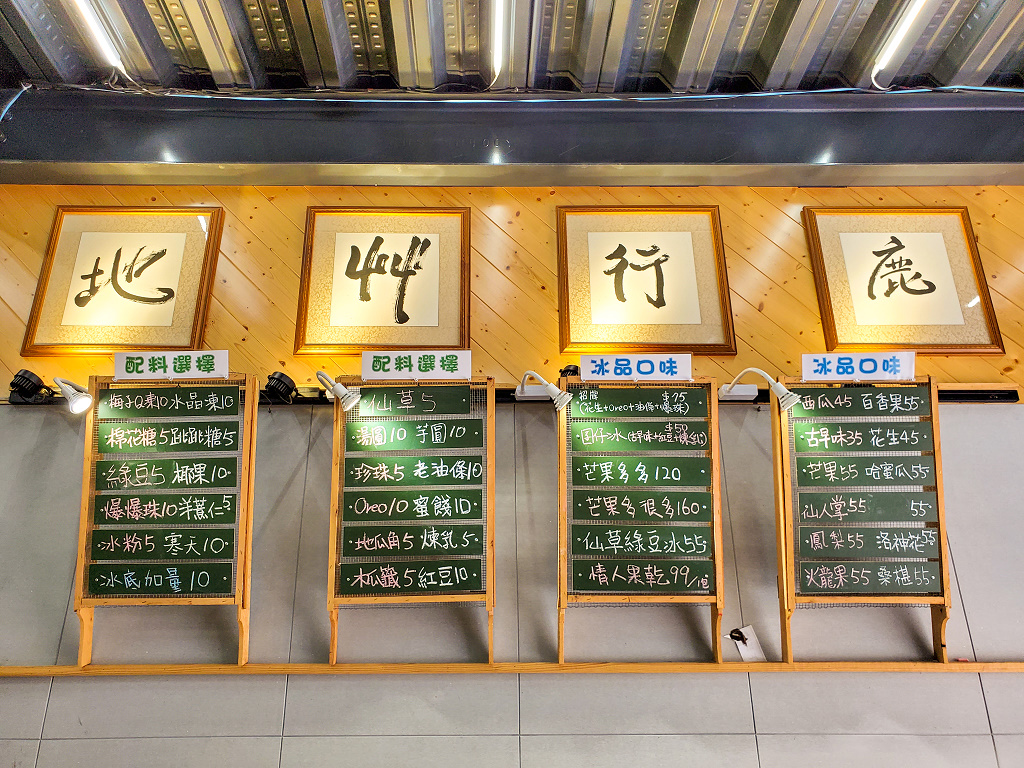 地 艸 行 鹿
配料選擇
梅子Q凍10 水晶凍10
棉花糖5 跳跳糖5
綠豆5 椰果10
爆爆珠10 洋薏仁5
冰粉5 寒天10
冰底加量10
配料選擇
仙草5
湯圓10 芋圓10
珍珠5 老油條10
Oreo10 蜜餞10
地瓜角5 煉乳5
木瓜籤5 紅豆10
冰品口味
招牌 $75
(花生+Oreo+油條+爆珠)
$50
芒果多多120
芒果多很多160
仙草綠豆冰55
情人果乾99/包
冰品口味
西瓜45 百香果55
古早味35 花生45
芒果55 哈蜜瓜55
仙人掌55 55
鳳梨55 洛神花55
火龍果55 桑椹55